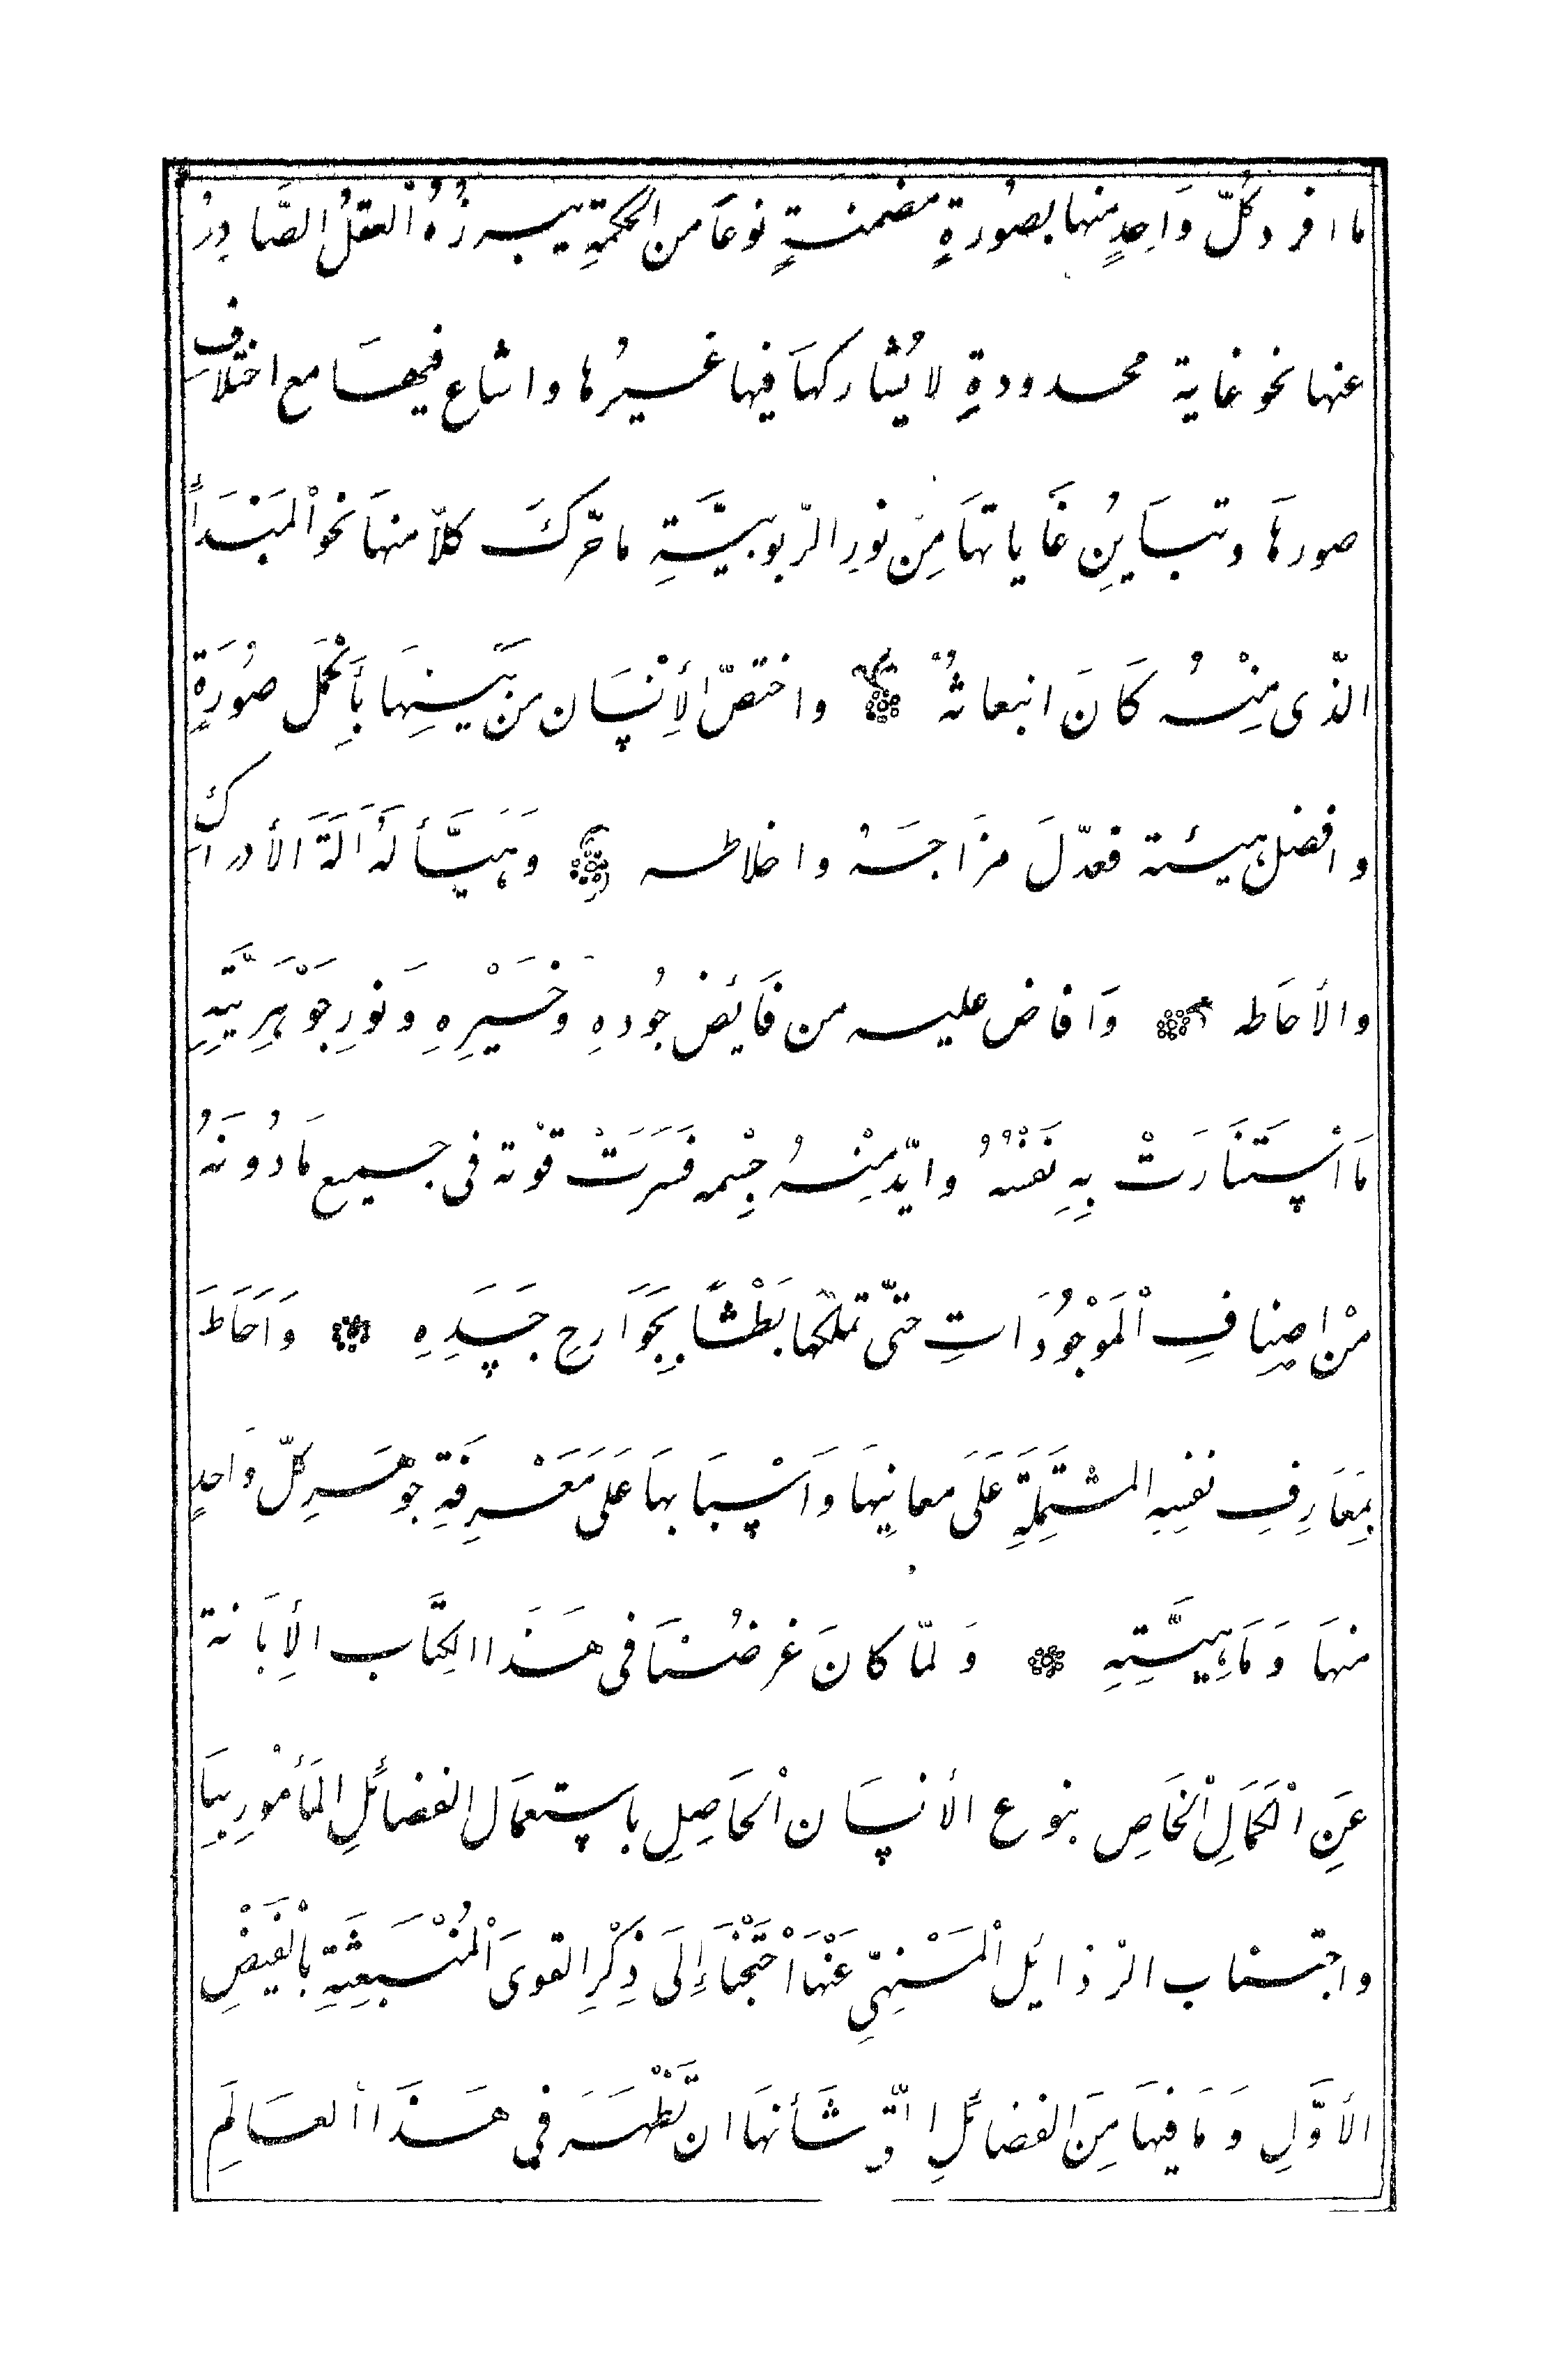 ما افرد كُلّ وَاحِدٍ منها بصُورةٍ مضمنةٍ نوعًا من الحكمةِ يبرزُهُ الْعقلُ الصَّادِرُ
عنها نحو غاية محدودةٍ لا يُشاركهَا فيها غيرُها واشاع فيهَا مع اختلافِ
صورهَا وتبَايُنِ غَاياتهَا مِنْ نورِ الرّبوبيَّةِ ما حَرّكَ كلاّ منهَا نحوَ الْمَبْدَأ
الذّى مِنْهُ كَانَ انبعاثهُ واختصّ الأِنْسَان من بَيْنِهَا بِأَكْمَل صُورَةٍ
وافضل هيئة فعدّلَ مزَاجَهُ واخلاطه وَهَيَّأ لَهُ الَةَ الأدراكِ
والأحَاطه وَافاض عليه من فَائِض جُودهِ وَخَيْرِهِ وَنورِ جَوْهَرِيَّتِهِ
مَا اسْتَنَارَتْ بِهِ نَفْسُهُ وايّد مِنْهُ جِسْمه فَسَرَتْ قوّته فى جميع مَا دُونَهُ
مِنْ اصنافِ الْمَوْجُودَاتِ حتّى تملّكها بَطْشًا بِجَوَارِحِ جَسَدِهِ وَاَحَاطَ
بِمَعَارِفِ نفسِهِ المشْتَمِلَةِ عَلَى معانِيهَا وَاَسْبَابهَا عَلى مَعْرِفَةِ جوهَرِ كلّ وَاحدٍ
منهَا وَمَاهِيَّتِهِ وَلمّا كانَ غرضُنَا فى هَذَا الكِتَاب الأِبَانة
عَنِ اْلكَمَالِ الْخَاصِ بنوع الأنسَان الْحَاصِلِ باستعمَال الفضَائلِ المَأمْورِ بِهَا
واجتناب الرّذائِل الْمَنْهِيّ عَنْهَا اَحْتَجْنَا إِلَى ذِكْرِ القوىَ الْمُنْبَعِثَةِ بِالْفَيْضِ
الأوَّلِ وَمَا فيهَا مِنَ الفضَائلِ الّتى شَأنهَا ان تَظْهَرَ فى هَذَا العَالَمِ